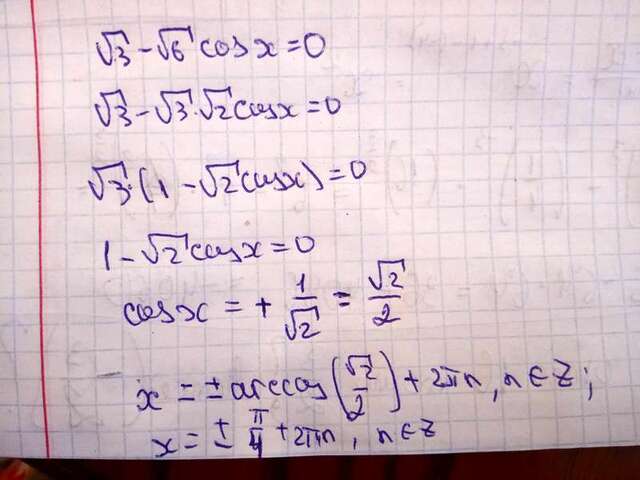 √3 - √6 cos x = 0
√3 - √3·√2 cos x = 0
√3·(1 - √2 cos x) = 0
1 - √2 cos x = 0
cos x = + 1/√2 = √2/2
x = ± arccos(√2/2) + 2πn, n ∈ Z;
x = ± π/4 + 2πn, n ∈ Z